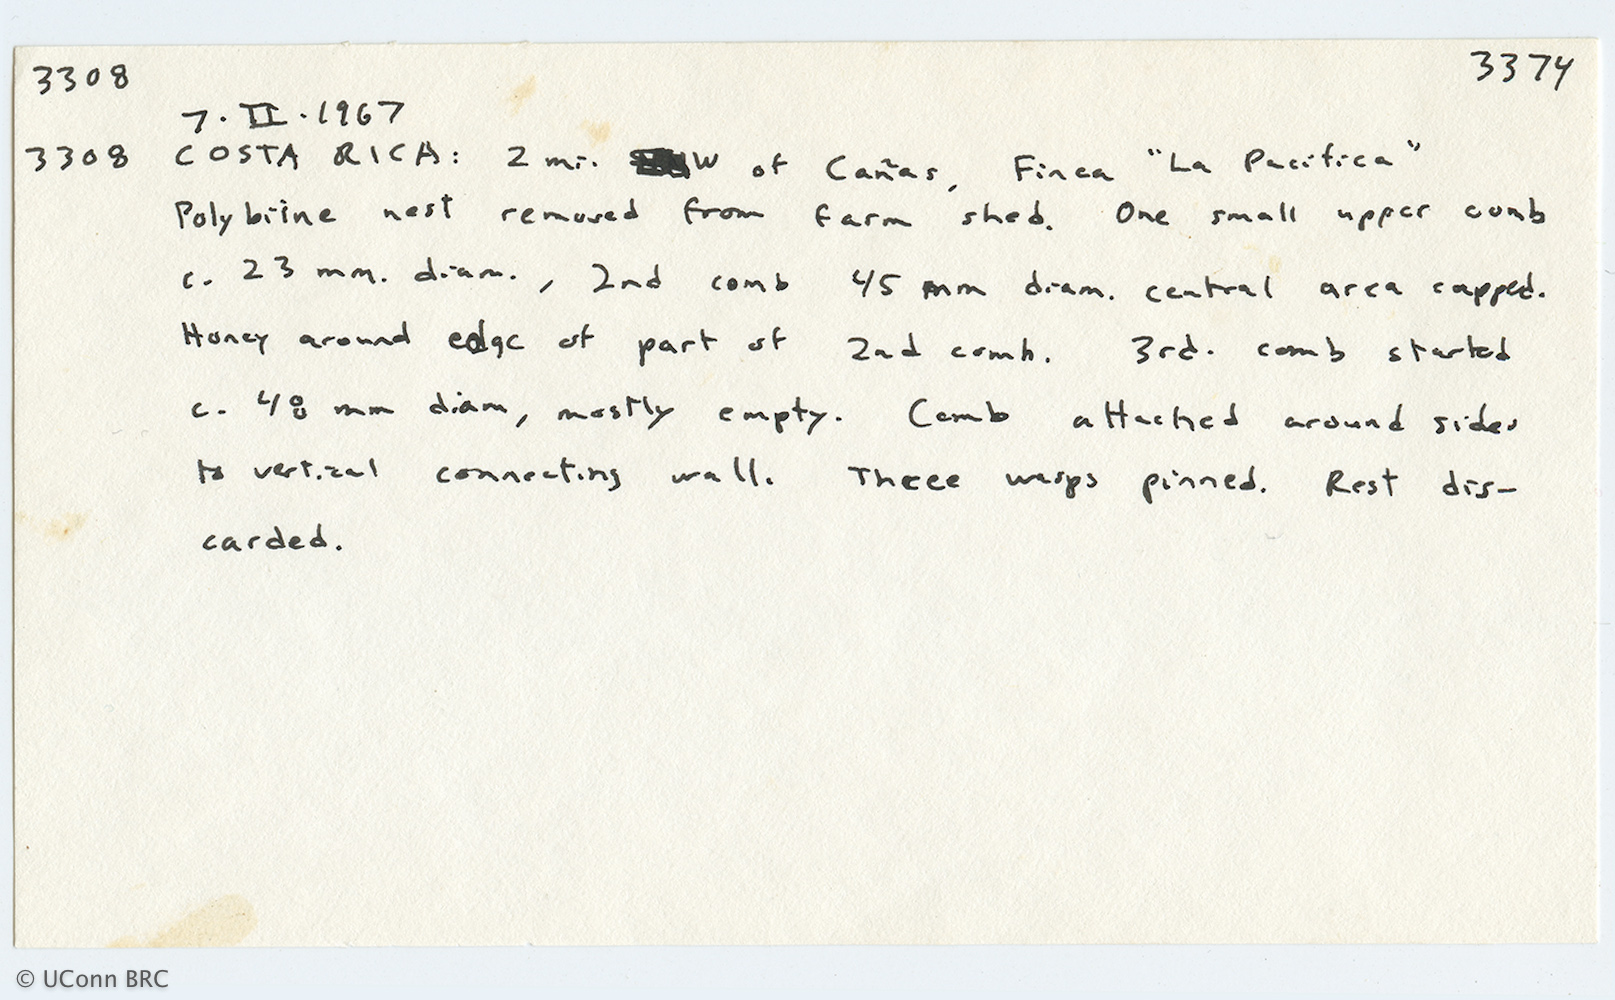 3308 3374
7·II·1967
3308 COSTA RICA: 2 mi. W of Cañas, Finca "La Pacifica"
Polybiine nest removed from farm shed. One small upper comb
c. 23 mm. diam., 2nd comb 45 mm diam. central area capped.
Honey around edge of part of 2nd comb. 3rd. comb started
c. 48 mm diam, mostly empty. Comb attached around sides
to vertical connecting wall. Three wasps pinned. Rest dis-
carded.
© UConn BRC